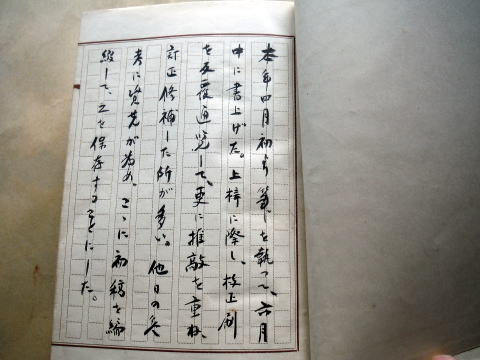 本年四月初より筆を執つて、六月
中に書上げた。上梓に際し、校正刷
を反覆通覧して、更に推敲を重ね、
訂正修補した所が多い。他日の参
考に資せんが為め、こゝに初稿を編
綴して、之を保存することにした。